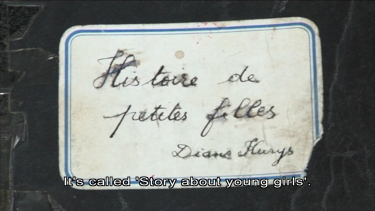 Histoire de
petites filles
Diane Kurys
It's called 'Story about young girls'.